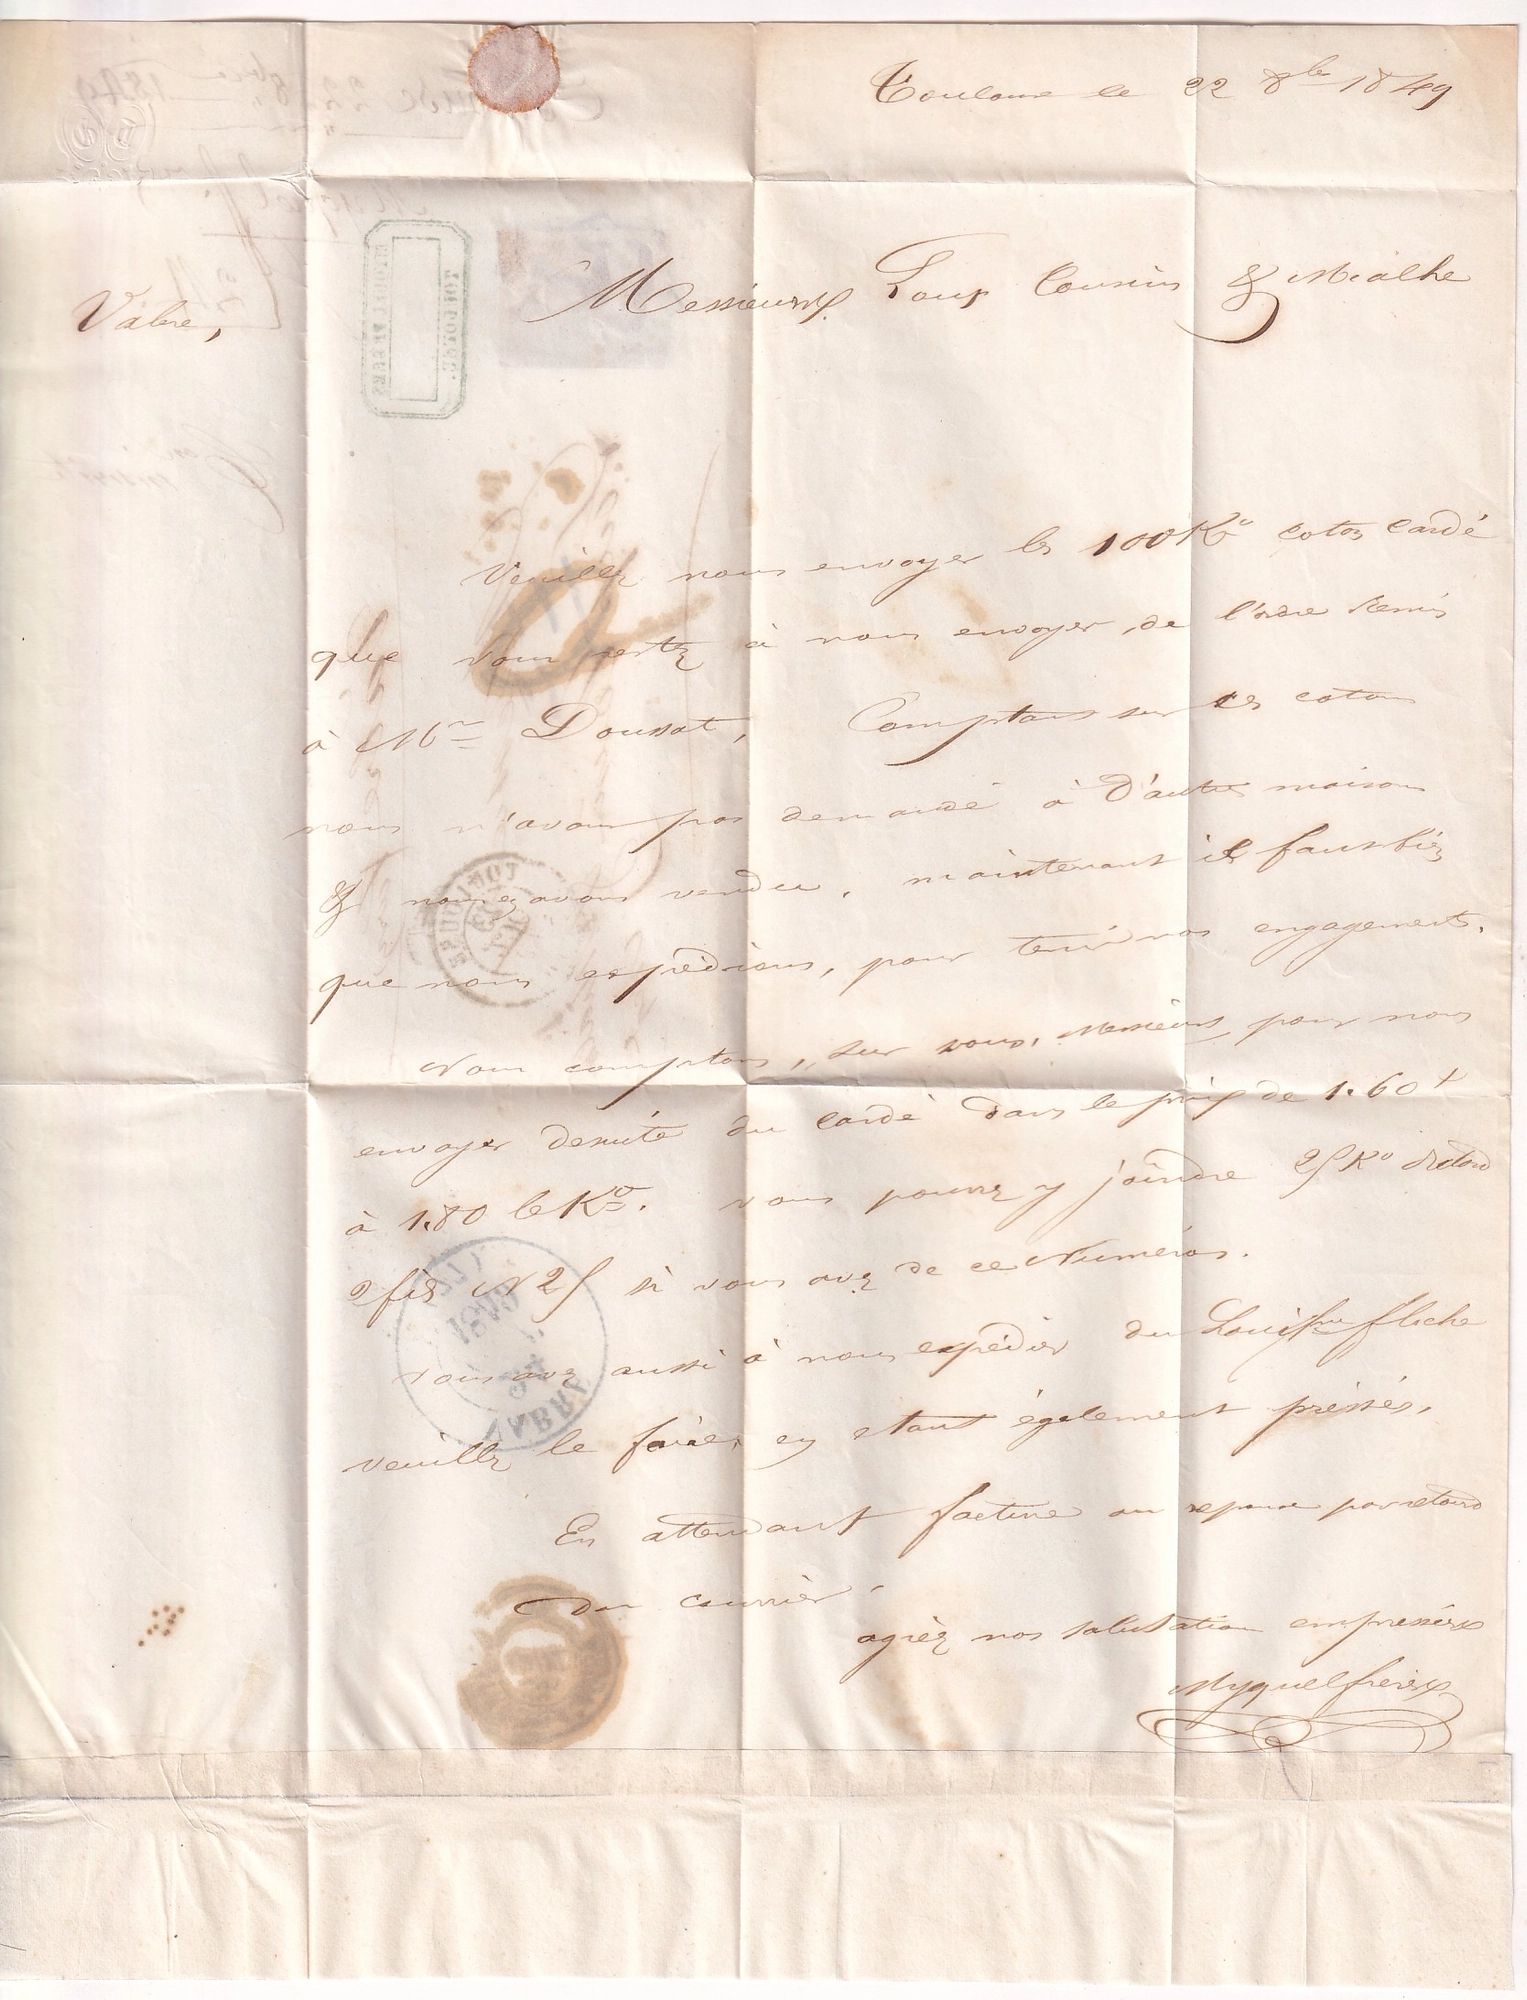 Toulouse le 22 8bre 1849
Messieurs Loup Cousins & Mialhe
Vabre,
Veuillez nous envoyer les 100 Ko coton cardé
que vous restez à nous envoyer, de l'ordre remis
à Mr Doussat, Comptant sur ces cotons
nous n'avons pas demandé à d'autres maisons
& nous avons vendu, maintenant il faut bien
que nous expédions, pour tenir nos engagements.
Nous comptons, sur vous, Messieurs pour nous
envoyer de suite du cardé dans le prix de 1.60
à 1.80 le Ko. vous pouvez y joindre 25 Ko retord
2 fils N 25 si vous avez de ce Numéros.
vous avez aussi à nous expédier du fleche
veuillez le faire, en etant également préssés,
En attendant facture ou reponse par retour
du courrier
agréez nos salutations empressées
Myquel frères